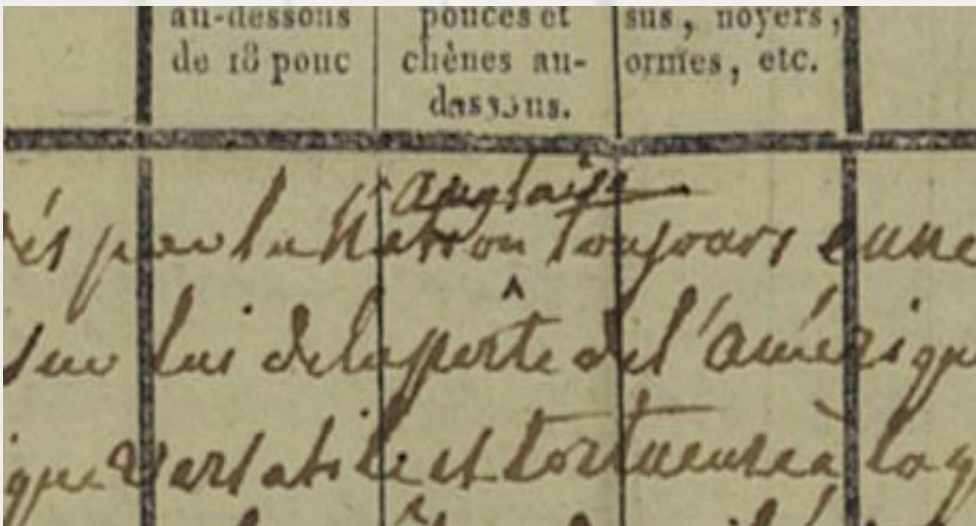 au-dessous
de 18 pouc
pouces et
chênes au-
dessous.
sus, noyers,
ormes, etc.
anglaise
és par la Nation toujours enne
sur lui de la perte de l'amériqu
ique versatile et tortueuse à laq